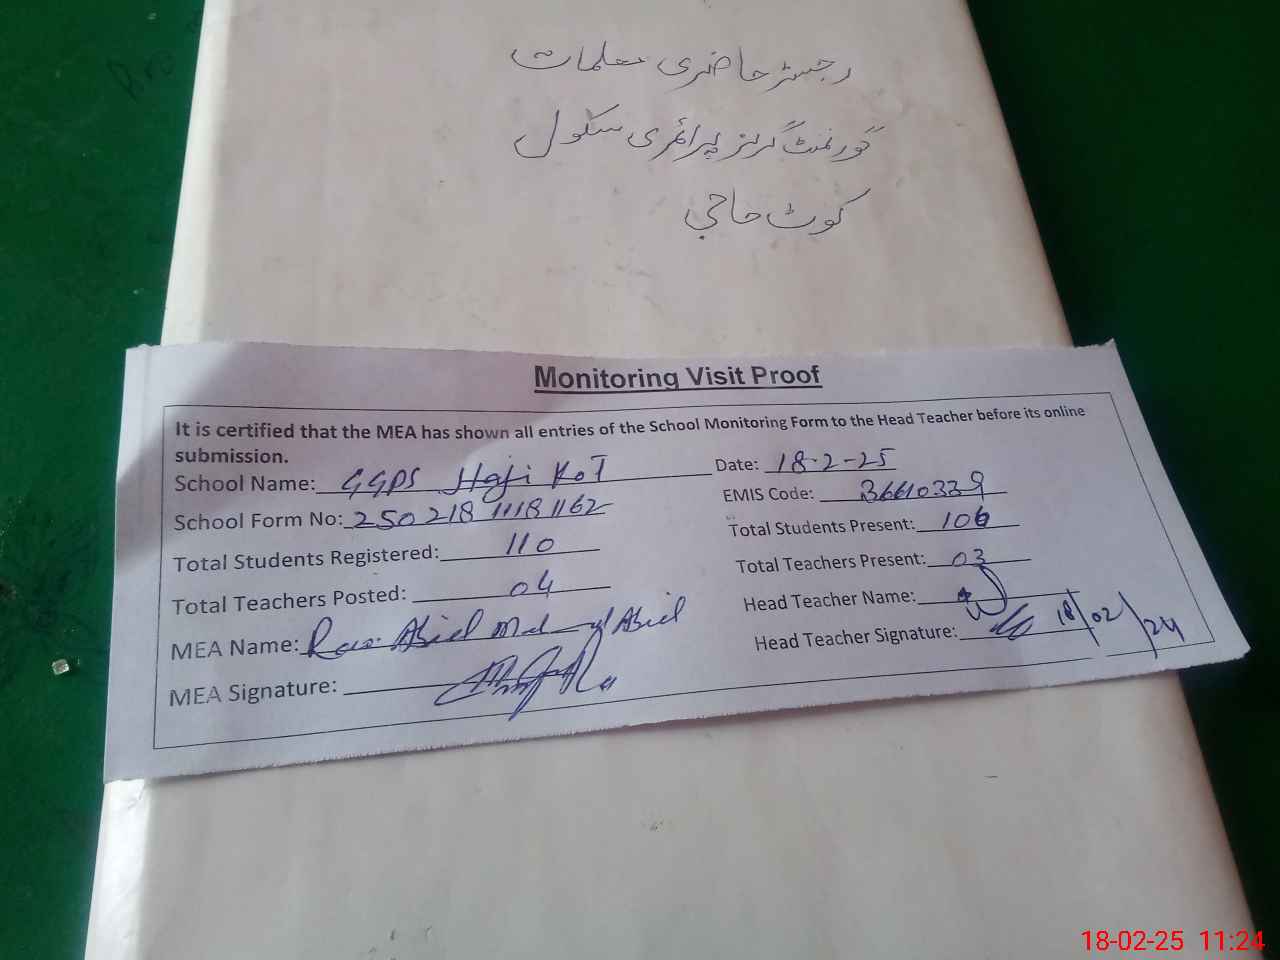 رجسٹر حاضری معلمات
گورنمنٹ گرلز پرائمری سکول
کوٹ حاجی
Monitoring Visit Proof
It is certified that the MEA has shown all entries of the School Monitoring Form to the Head Teacher before its online
submission.
School Name: GGPS Haji Kot Date: 18-2-25
School Form No: 250218 11181162 EMIS Code: 36610339
Total Students Registered: 110 Total Students Present: 106
Total Teachers Posted: 04 Total Teachers Present: 03
MEA Name: Rao Abid Abid Head Teacher Name:
MEA Signature: Head Teacher Signature: 18/02/24
18-02-25 11:24